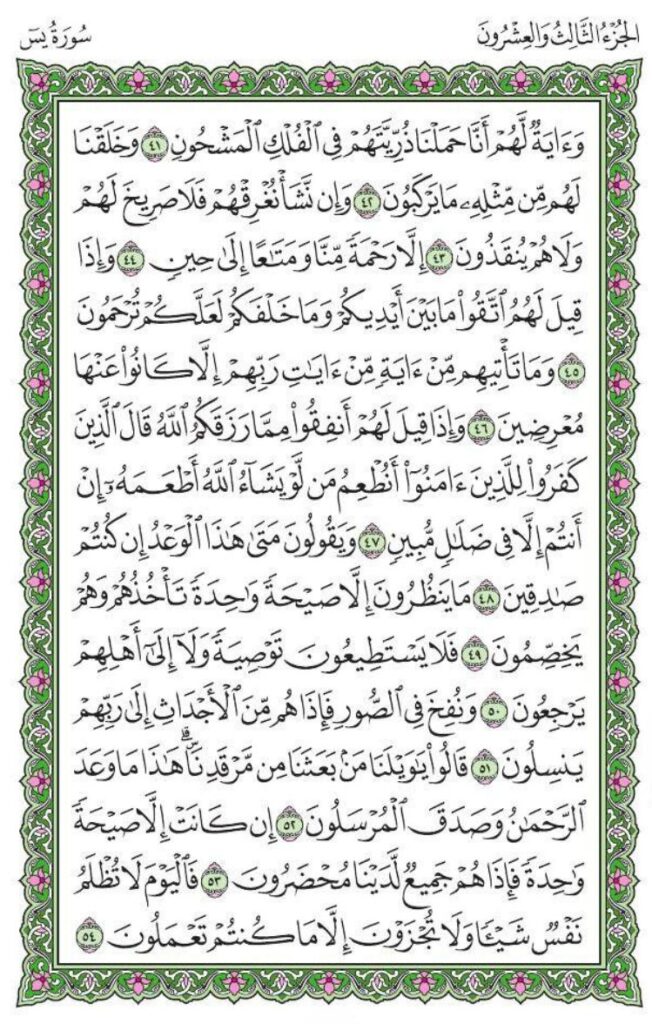 الجُزْءُ الثَّالِثُ وَالعِشْرُونَ
سُورَةُ يسٓ
وَءَايَةٌ لَّهُمْ أَنَّا حَمَلْنَا ذُرِّيَّتَهُمْ فِي ٱلْفُلْكِ ٱلْمَشْحُونِ ٤١ وَخَلَقْنَا
لَهُم مِّن مِّثْلِهِۦ مَا يَرْكَبُونَ ٤٢ وَإِن نَّشَأْ نُغْرِقْهُمْ فَلَا صَرِيخَ لَهُمْ
وَلَا هُمْ يُنقَذُونَ ٤٣ إِلَّا رَحْمَةً مِّنَّا وَمَتَٰعًا إِلَىٰ حِينٍ ٤٤ وَإِذَا
قِيلَ لَهُمُ ٱتَّقُوا۟ مَا بَيْنَ أَيْدِيكُمْ وَمَا خَلْفَكُمْ لَعَلَّكُمْ تُرْحَمُونَ
٤٥ وَمَا تَأْتِيهِم مِّنْ ءَايَةٍ مِّنْ ءَايَٰتِ رَبِّهِمْ إِلَّا كَانُوا۟ عَنْهَا
مُعْرِضِينَ ٤٦ وَإِذَا قِيلَ لَهُمْ أَنفِقُوا۟ مِمَّا رَزَقَكُمُ ٱللَّهُ قَالَ ٱلَّذِينَ
كَفَرُوا۟ لِلَّذِينَ ءَامَنُوٓا۟ أَنُطْعِمُ مَن لَّوْ يَشَآءُ ٱللَّهُ أَطْعَمَهُۥٓ إِنْ
أَنتُمْ إِلَّا فِي ضَلَٰلٍ مُّبِينٍ ٤٧ وَيَقُولُونَ مَتَىٰ هَٰذَا ٱلْوَعْدُ إِن كُنتُمْ
صَٰدِقِينَ ٤٨ مَا يَنظُرُونَ إِلَّا صَيْحَةً وَٰحِدَةً تَأْخُذُهُمْ وَهُمْ
يَخِصِّمُونَ ٤٩ فَلَا يَسْتَطِيعُونَ تَوْصِيَةً وَلَآ إِلَىٰٓ أَهْلِهِمْ
يَرْجِعُونَ ٥٠ وَنُفِخَ فِي ٱلصُّورِ فَإِذَا هُم مِّنَ ٱلْأَجْدَاثِ إِلَىٰ رَبِّهِمْ
يَنسِلُونَ ٥١ قَالُوا۟ يَٰوَيْلَنَا مَنۢ بَعَثَنَا مِن مَّرْقَدِنَا ۜ ۗ هَٰذَا مَا وَعَدَ
ٱلرَّحْمَٰنُ وَصَدَقَ ٱلْمُرْسَلُونَ ٥٢ إِن كَانَتْ إِلَّا صَيْحَةً
وَٰحِدَةً فَإِذَا هُمْ جَمِيعٌ لَّدَيْنَا مُحْضَرُونَ ٥٣ فَٱلْيَوْمَ لَا تُظْلَمُ
نَفْسٌ شَيْـًٔا وَلَا تُجْزَوْنَ إِلَّا مَا كُنتُمْ تَعْمَلُونَ ٥٤